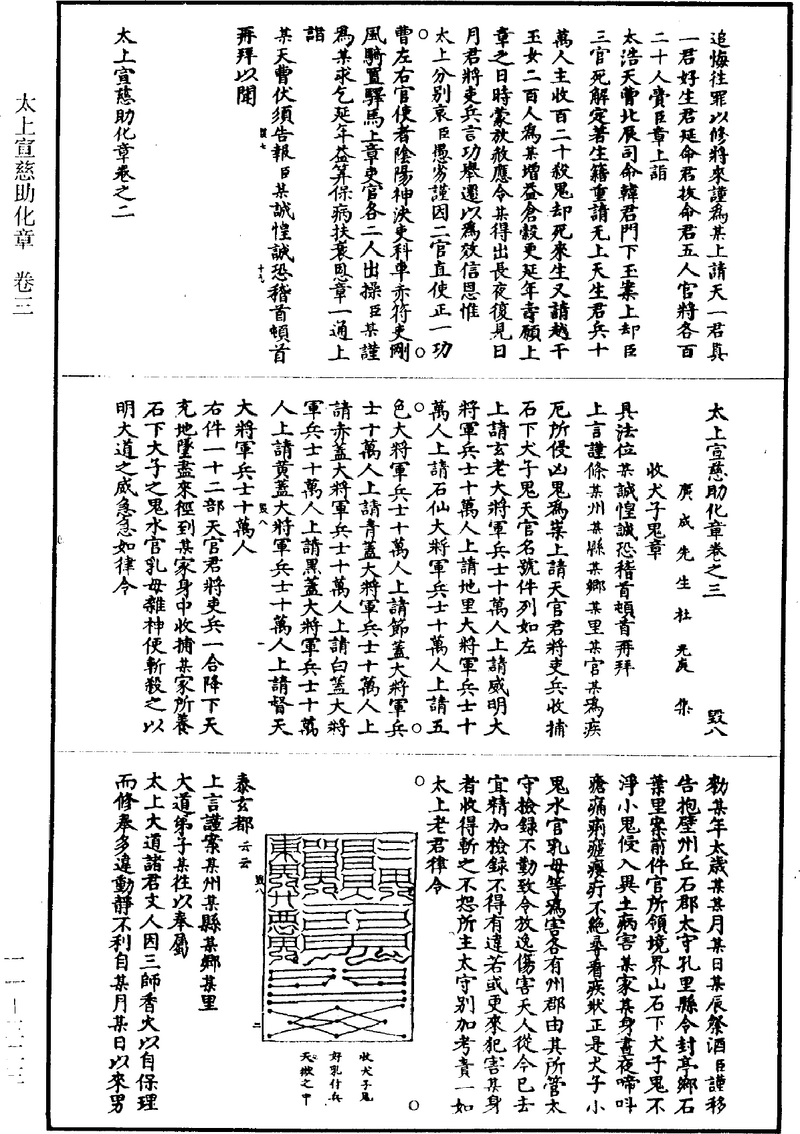 太上宣慈助化章 卷三
追悔往罪以修將來謹爲某上請天一君眞
一君好生君延命君拔命君五人官將各百
二十人賫臣章上詣
太浩天曹北辰司命韓君門下玉案上却臣
三官死解定著生籍重請无上天生君兵十
萬人主收百二十殺鬼却死來生又請越千
玉女二百人爲某增益倉穀更延年壽願上
章之日時蒙放赦應令某得出長夜復見日
月君將吏兵言功舉遷以爲效信恩惟
太上分別哀臣愚劣謹因二官直使正一功
曹左右官使者陰陽神決吏科車赤符吏剛
風騎置驛馬上章吏官各二人出操臣某謹
爲某求乞延年益算保病扶衰恩章一通上
詣
某天曹伏須告報臣某誠惶誠恐稽首頓首
再拜以聞
太上宣慈助化章卷之二
太上宣慈助化章卷之三 毀八
廣成先生杜光庭集
收犬子鬼章
具法位某誠惶誠恐稽首頓首再拜
上言謹條某州某縣某鄉某里某官某爲疾
厄所侵凶鬼爲祟上請天官君將吏兵收捕
石下犬子鬼天官名號件列如左
上請玄老大將軍兵士十萬人上請威明大
將軍兵士十萬人上請地里大將軍兵士十
萬人上請石仙大將軍兵士十萬人上請五
色大將軍兵士十萬人上請節蓋大將軍兵
士十萬人上請青蓋大將軍兵士十萬人上
請赤蓋大將軍兵士十萬人上請白蓋大將
軍兵士十萬人上請黑蓋大將軍兵士十萬
人上請黃蓋大將軍兵士十萬人上請督天
大將軍兵士十萬人
右件一十二部天官君將吏兵一合降下天
充地墮盡來徑到某家身中收捕某家所養
石下犬子之鬼水官乳母雜神便斬殺之以
明大道之威急急如律令
勑某年太歲某某月某日某辰祭酒臣謹移
告抱壁州丘石郡太守孔里縣令封亭鄉石
葉里案前件官所領境界山石下犬子鬼不
淨小鬼侵入異土病害某家某身晝夜啼叫
瘡痛痢癧癭疔不絕尋看疾狀正是犬子小
鬼水官乳母等爲害各有州郡由其所管太
守檢錄不勤致令放逸傷害天人從今已去
宜精加檢錄不得有違若或更來犯害某身
者收得斬之不恕所主太守別加考責一如
太上老君律令
收犬子鬼
好乳什兵
天
之中
泰玄都云云
上言謹案某州某縣某鄉某里
大道弟子某往以奉屬
太上大道諸君丈人因三師香火以自保理
而修奉多違動靜不利自某月某日以來男